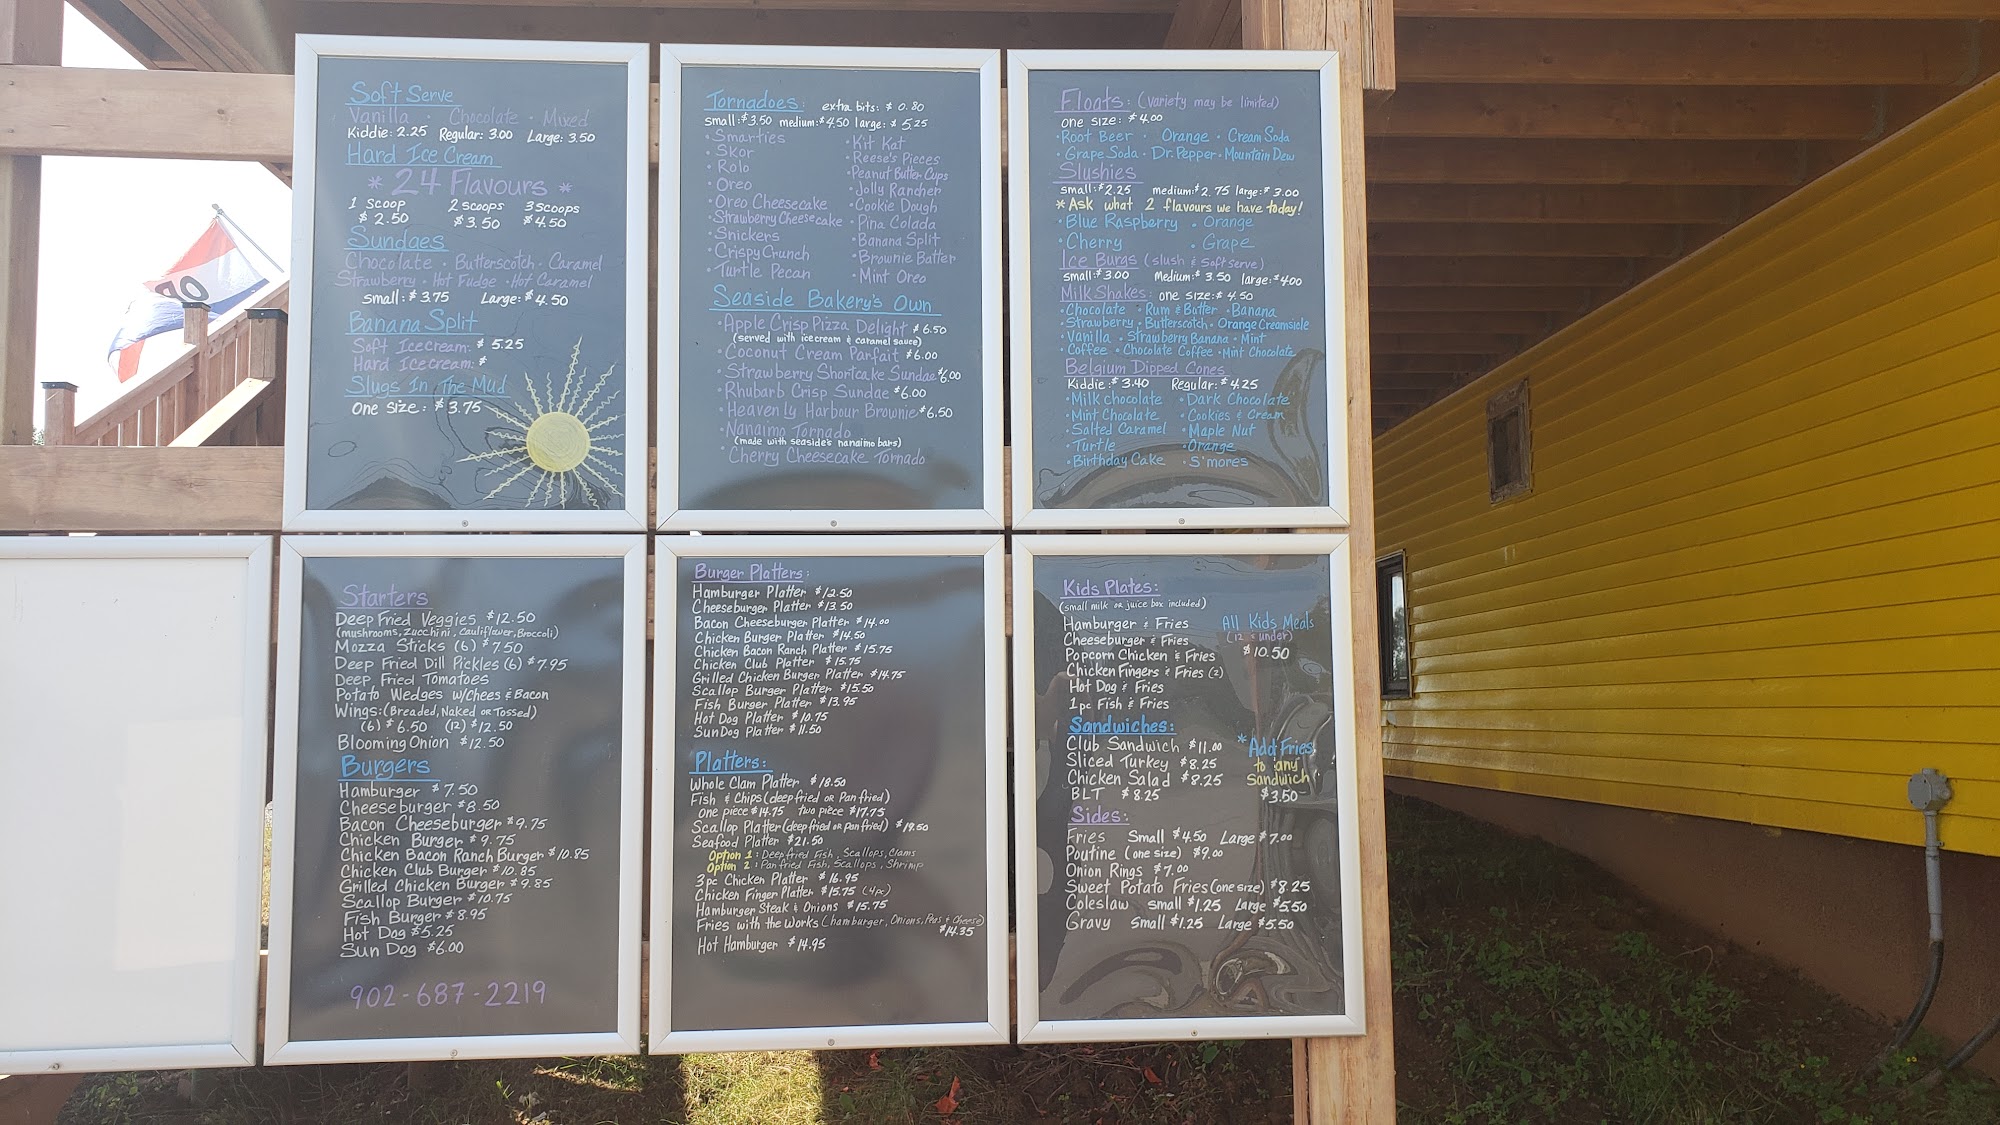 Soft Serve
Vanilla · Chocolate · Mixed
Kiddie: 2.25 Regular: 3.00 Large: 3.50
Hard Ice Cream
* 24 Flavours *
1 Scoop 2 scoops 3 scoops
$2.50 $3.50 $4.50
Sundaes
Chocolate · Butterscotch · Caramel
Strawberry · Hot Fudge · Hot Caramel
Small: $3.75 Large: $4.50
Banana Split
Soft Icecream: $5.25
Hard Icecream: $
Slugs In The Mud
One size: $3.75
Tornadoes: extra bits: $0.80
small: $3.50 medium: $4.50 large: $5.25
· Smarties
· Skor
· Rolo
· Oreo
· Oreo Cheesecake
· Strawberry Cheesecake
· Snickers
· Crispy Crunch
· Turtle Pecan
· Kit Kat
· Reese's Pieces
· Peanut Butter Cups
· Jolly Rancher
· Cookie Dough
· Pina Colada
· Banana Split
· Brownie Batter
· Mint Oreo
Seaside Bakery's Own
· Apple Crisp Pizza Delight $6.50
(served with icecream & caramel sauce)
· Coconut Cream Parfait $6.00
· Strawberry Shortcake Sundae $6.00
· Rhubarb Crisp Sundae $6.00
· Heavenly Harbour Brownie $6.50
· Nanaimo Tornado
(made with seaside's nanaimo bars)
· Cherry Cheesecake Tornado
Floats: (variety may be limited)
one size: $4.00
· Root Beer · Orange · Cream Soda
· Grape Soda · Dr. Pepper · Mountain Dew
Slushies
small: $2.25 medium: $2.75 large: $3.00
* Ask what 2 flavours we have today!
· Blue Raspberry · Orange
· Cherry · Grape
Ice Burgs (slush & soft serve)
small: $3.00 Medium: $3.50 large: $4.00
Milk Shakes: one size: $4.50
· Chocolate · Rum & Butter · Banana
· Strawberry · Butterscotch · Orange Creamsicle
· Vanilla · Strawberry Banana · Mint
· Coffee · Chocolate Coffee · Mint Chocolate
Belgium Dipped Cones
Kiddie: $3.40 Regular: $4.25
· Milk chocolate · Dark Chocolate
· Mint Chocolate · Cookies & Cream
· Salted Caramel · Maple Nut
· Turtle · Orange
· Birthday Cake · S'mores
Starters
Deep Fried Veggies $12.50
(mushrooms, Zucchini, Cauliflower, Broccoli)
Mozza Sticks (6) $7.50
Deep Fried Dill Pickles (6) $7.95
Deep Fried Tomatoes
Potato Wedges w/Chees & Bacon
Wings: (Breaded, Naked or Tossed)
(6) $6.50 (12) $12.50
Blooming Onion $12.50
Burgers
Hamburger $7.50
Cheeseburger $8.50
Bacon Cheeseburger $9.75
Chicken Burger $9.75
Chicken Bacon Ranch Burger $10.85
Chicken Club Burger $10.85
Grilled Chicken Burger $9.85
Scallop Burger $10.75
Fish Burger $8.95
Hot Dog $5.25
Sun Dog $6.00
902-687-2219
Burger Platters:
Hamburger Platter $12.50
Cheeseburger Platter $13.50
Bacon Cheeseburger Platter $14.00
Chicken Burger Platter $14.50
Chicken Bacon Ranch Platter $15.75
Chicken Club Platter $15.75
Grilled Chicken Burger Platter $14.75
Scallop Burger Platter $15.50
Fish Burger Platter $13.95
Hot Dog Platter $10.75
Sun Dog Platter $11.50
Platters:
Whole Clam Platter $18.50
Fish & Chips (deep fried or Pan fried)
one piece $14.75 two piece $17.75
Scallop Platter (deep fried or pan fried) $19.50
Seafood Platter $21.50
Option 1: Deep fried Fish, Scallops, Clams
Option 2: Pan fried Fish, Scallops, Shrimp
3pc Chicken Platter $16.95
Chicken Finger Platter $15.75 (4pc)
Hamburger Steak & Onions $15.75
Fries with the Works (hamburger, Onions, Peas & Cheese)
$14.35
Hot Hamburger $14.95
Kids Plates:
(small milk or juice box included)
Hamburger & Fries
Cheeseburger & Fries
Popcorn Chicken & Fries
Chicken Fingers & Fries (2)
Hot Dog & Fries
1pc Fish & Fries
All Kids Meals
(12 & under)
$10.50
Sandwiches:
Club Sandwich $11.00
Sliced Turkey $8.25
Chicken Salad $8.25
BLT $8.25
* Add Fries
to any
Sandwich
$3.50
Sides:
Fries Small $4.50 Large $7.00
Poutine (one size) $9.00
Onion Rings $7.00
Sweet Potato Fries (one size) $8.25
Coleslaw small $1.25 Large $5.50
Gravy small $1.25 Large $5.50